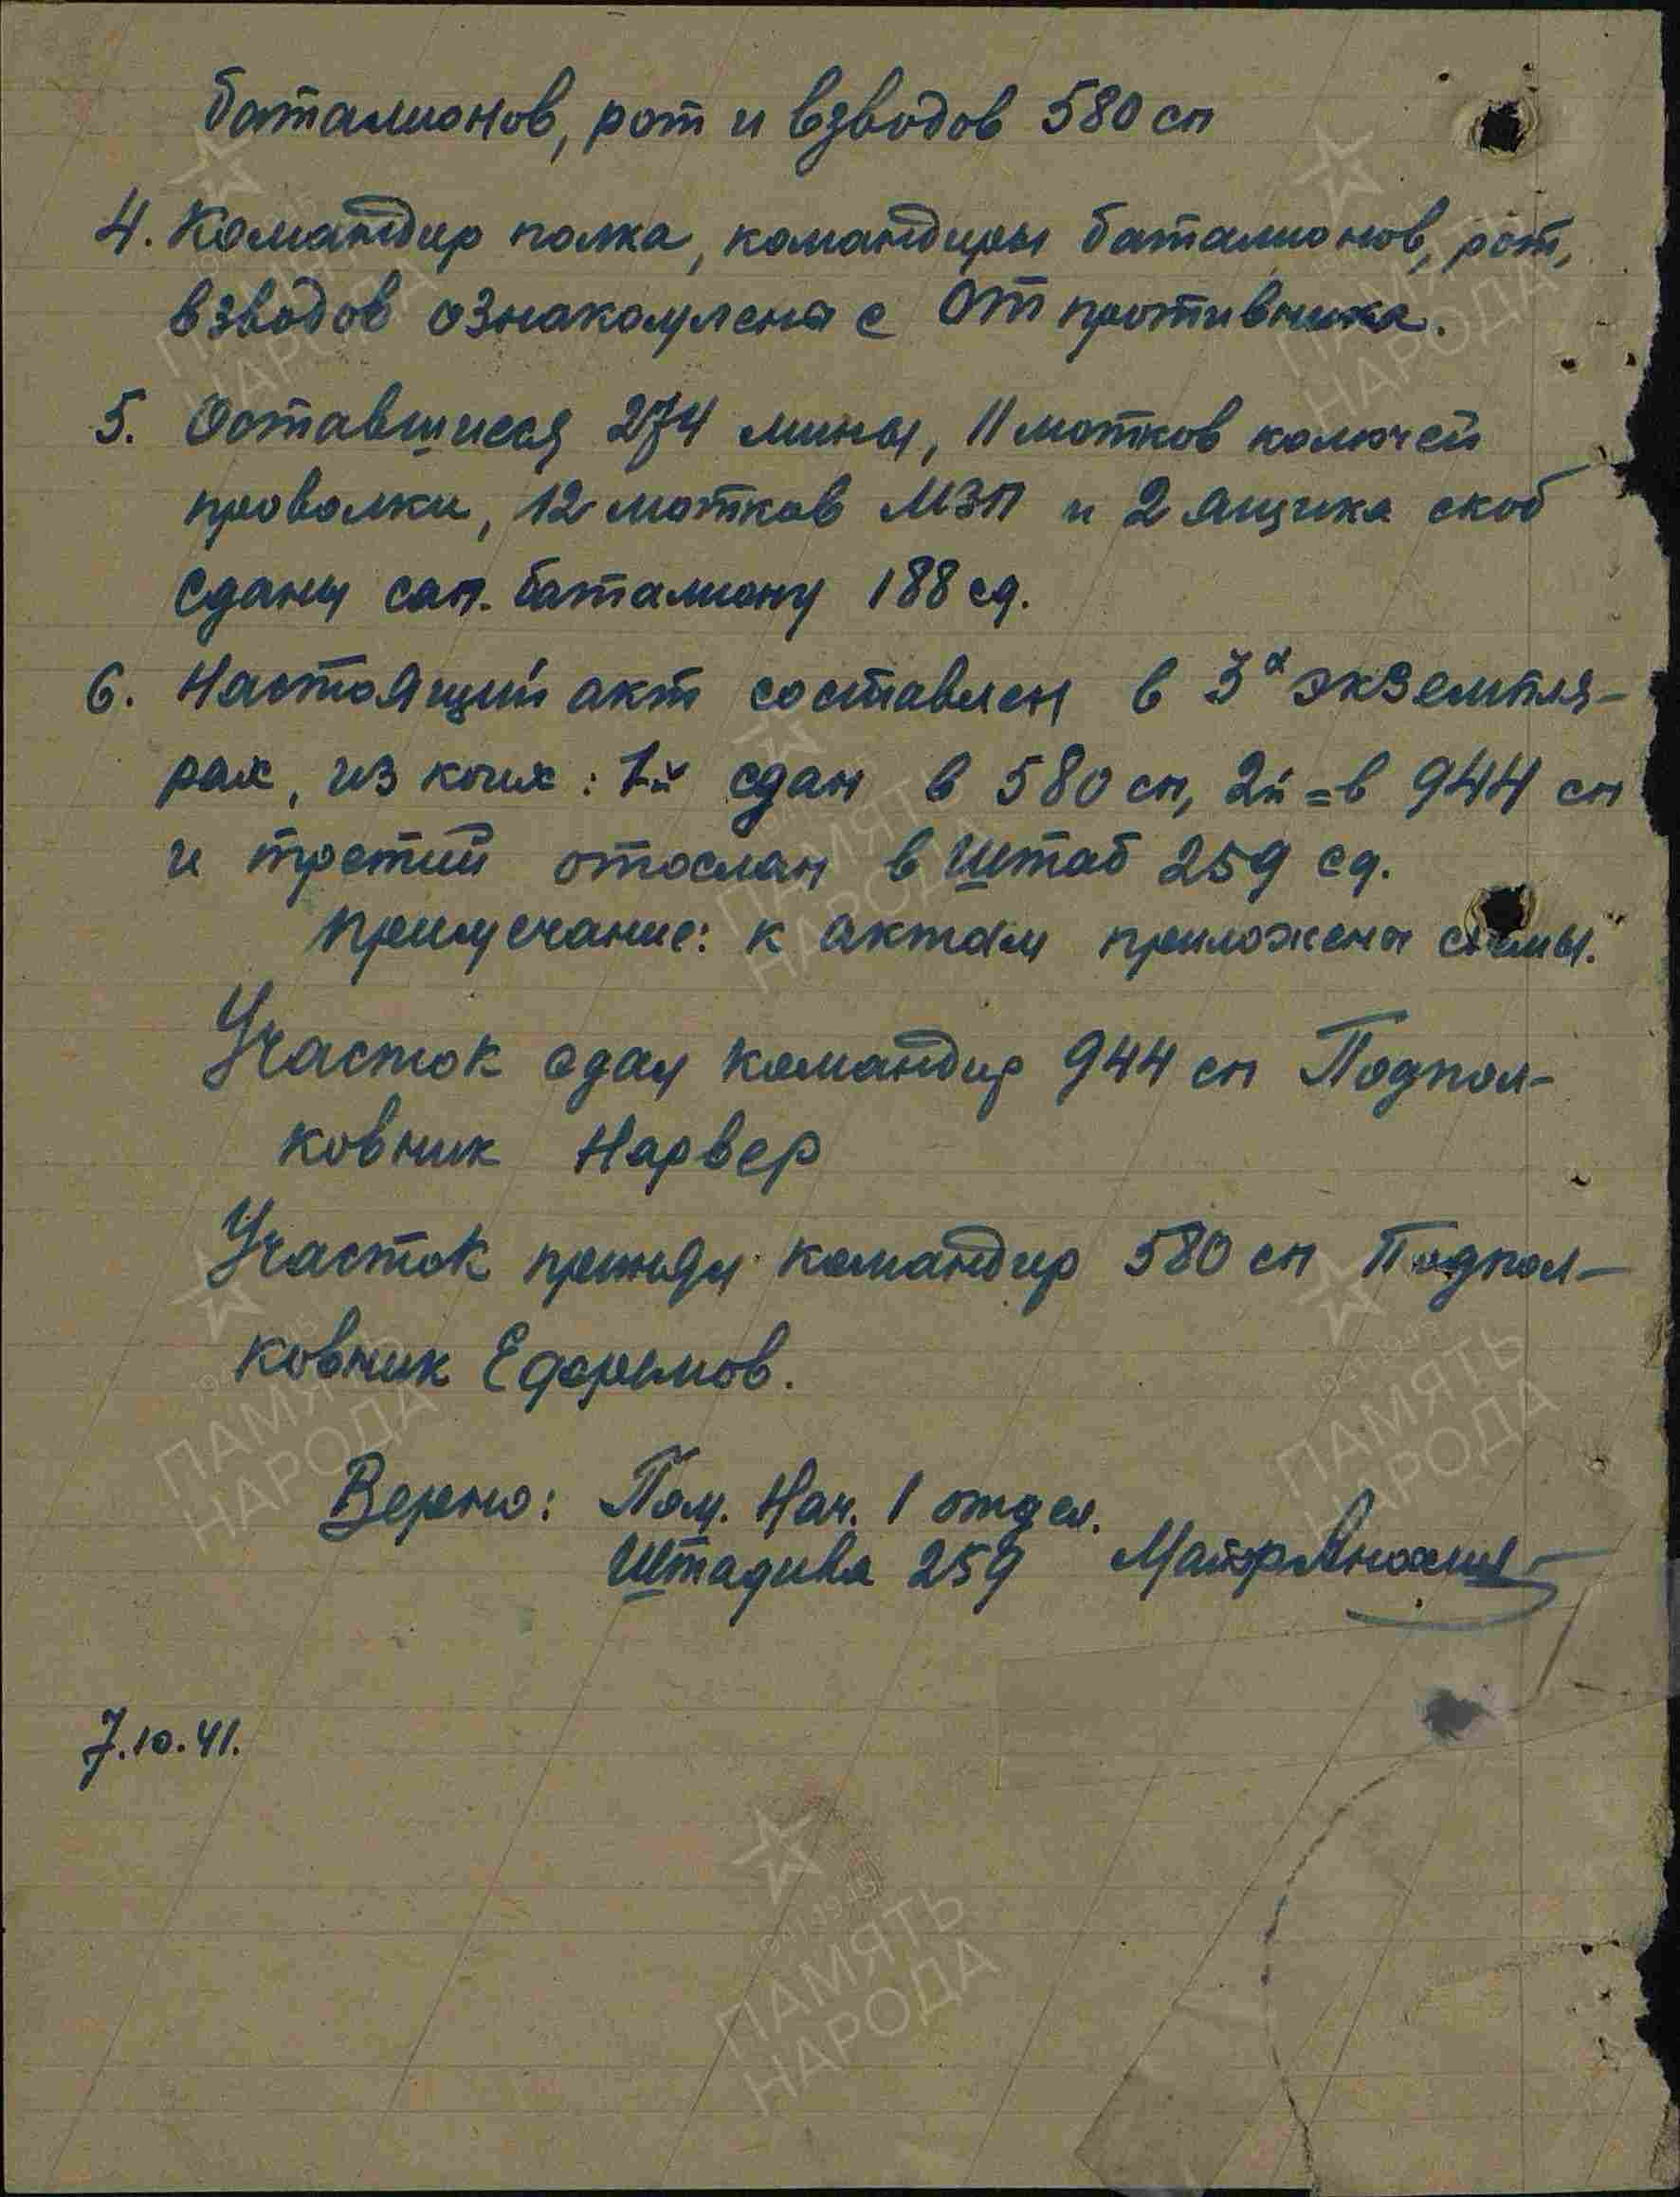 баталионов, рот и взводов 580 сп
4. Командир полка, командиры баталионов, рот,
взводов ознакомлены с ОТ противника.
5. Оставшиеся 274 мины, 11 мотков колючей
проволки, 12 мотков МЗП и 2 ящика скоб
сданы сап. баталиону 188 сд.
6. Настоящий акт составлен в 3х экземпля-
рах, из коих: 1й сдан в 580 сп, 2й = в 944 сп
и третий отослан в штаб 259 сд.
Примечание: к актам приложены схемы.
Участок сдал командир 944 сп Подпол-
ковник Нарвер
Участок принял командир 580 сп Подпол-
ковник Ефремов.
Верно: Пом. Нач. 1 отдел.
Штадива 259 Майор
7.10.41.
ПАМЯТЬ
НАРОДА